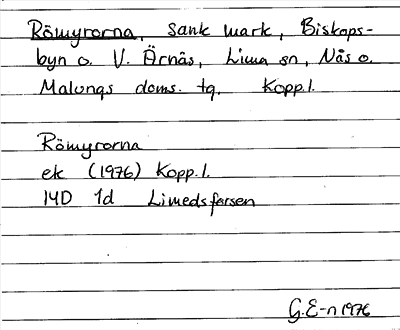 Römyrorna, sank mark, Biskops-
byn o. V. Ärnäs, Lima sn, Nås o.
Malungs doms. tg, Kopp.l.
Römyrorna
ek (1976) Kopp.l.
14D 1d Limedsforsen
G.E-n 1976